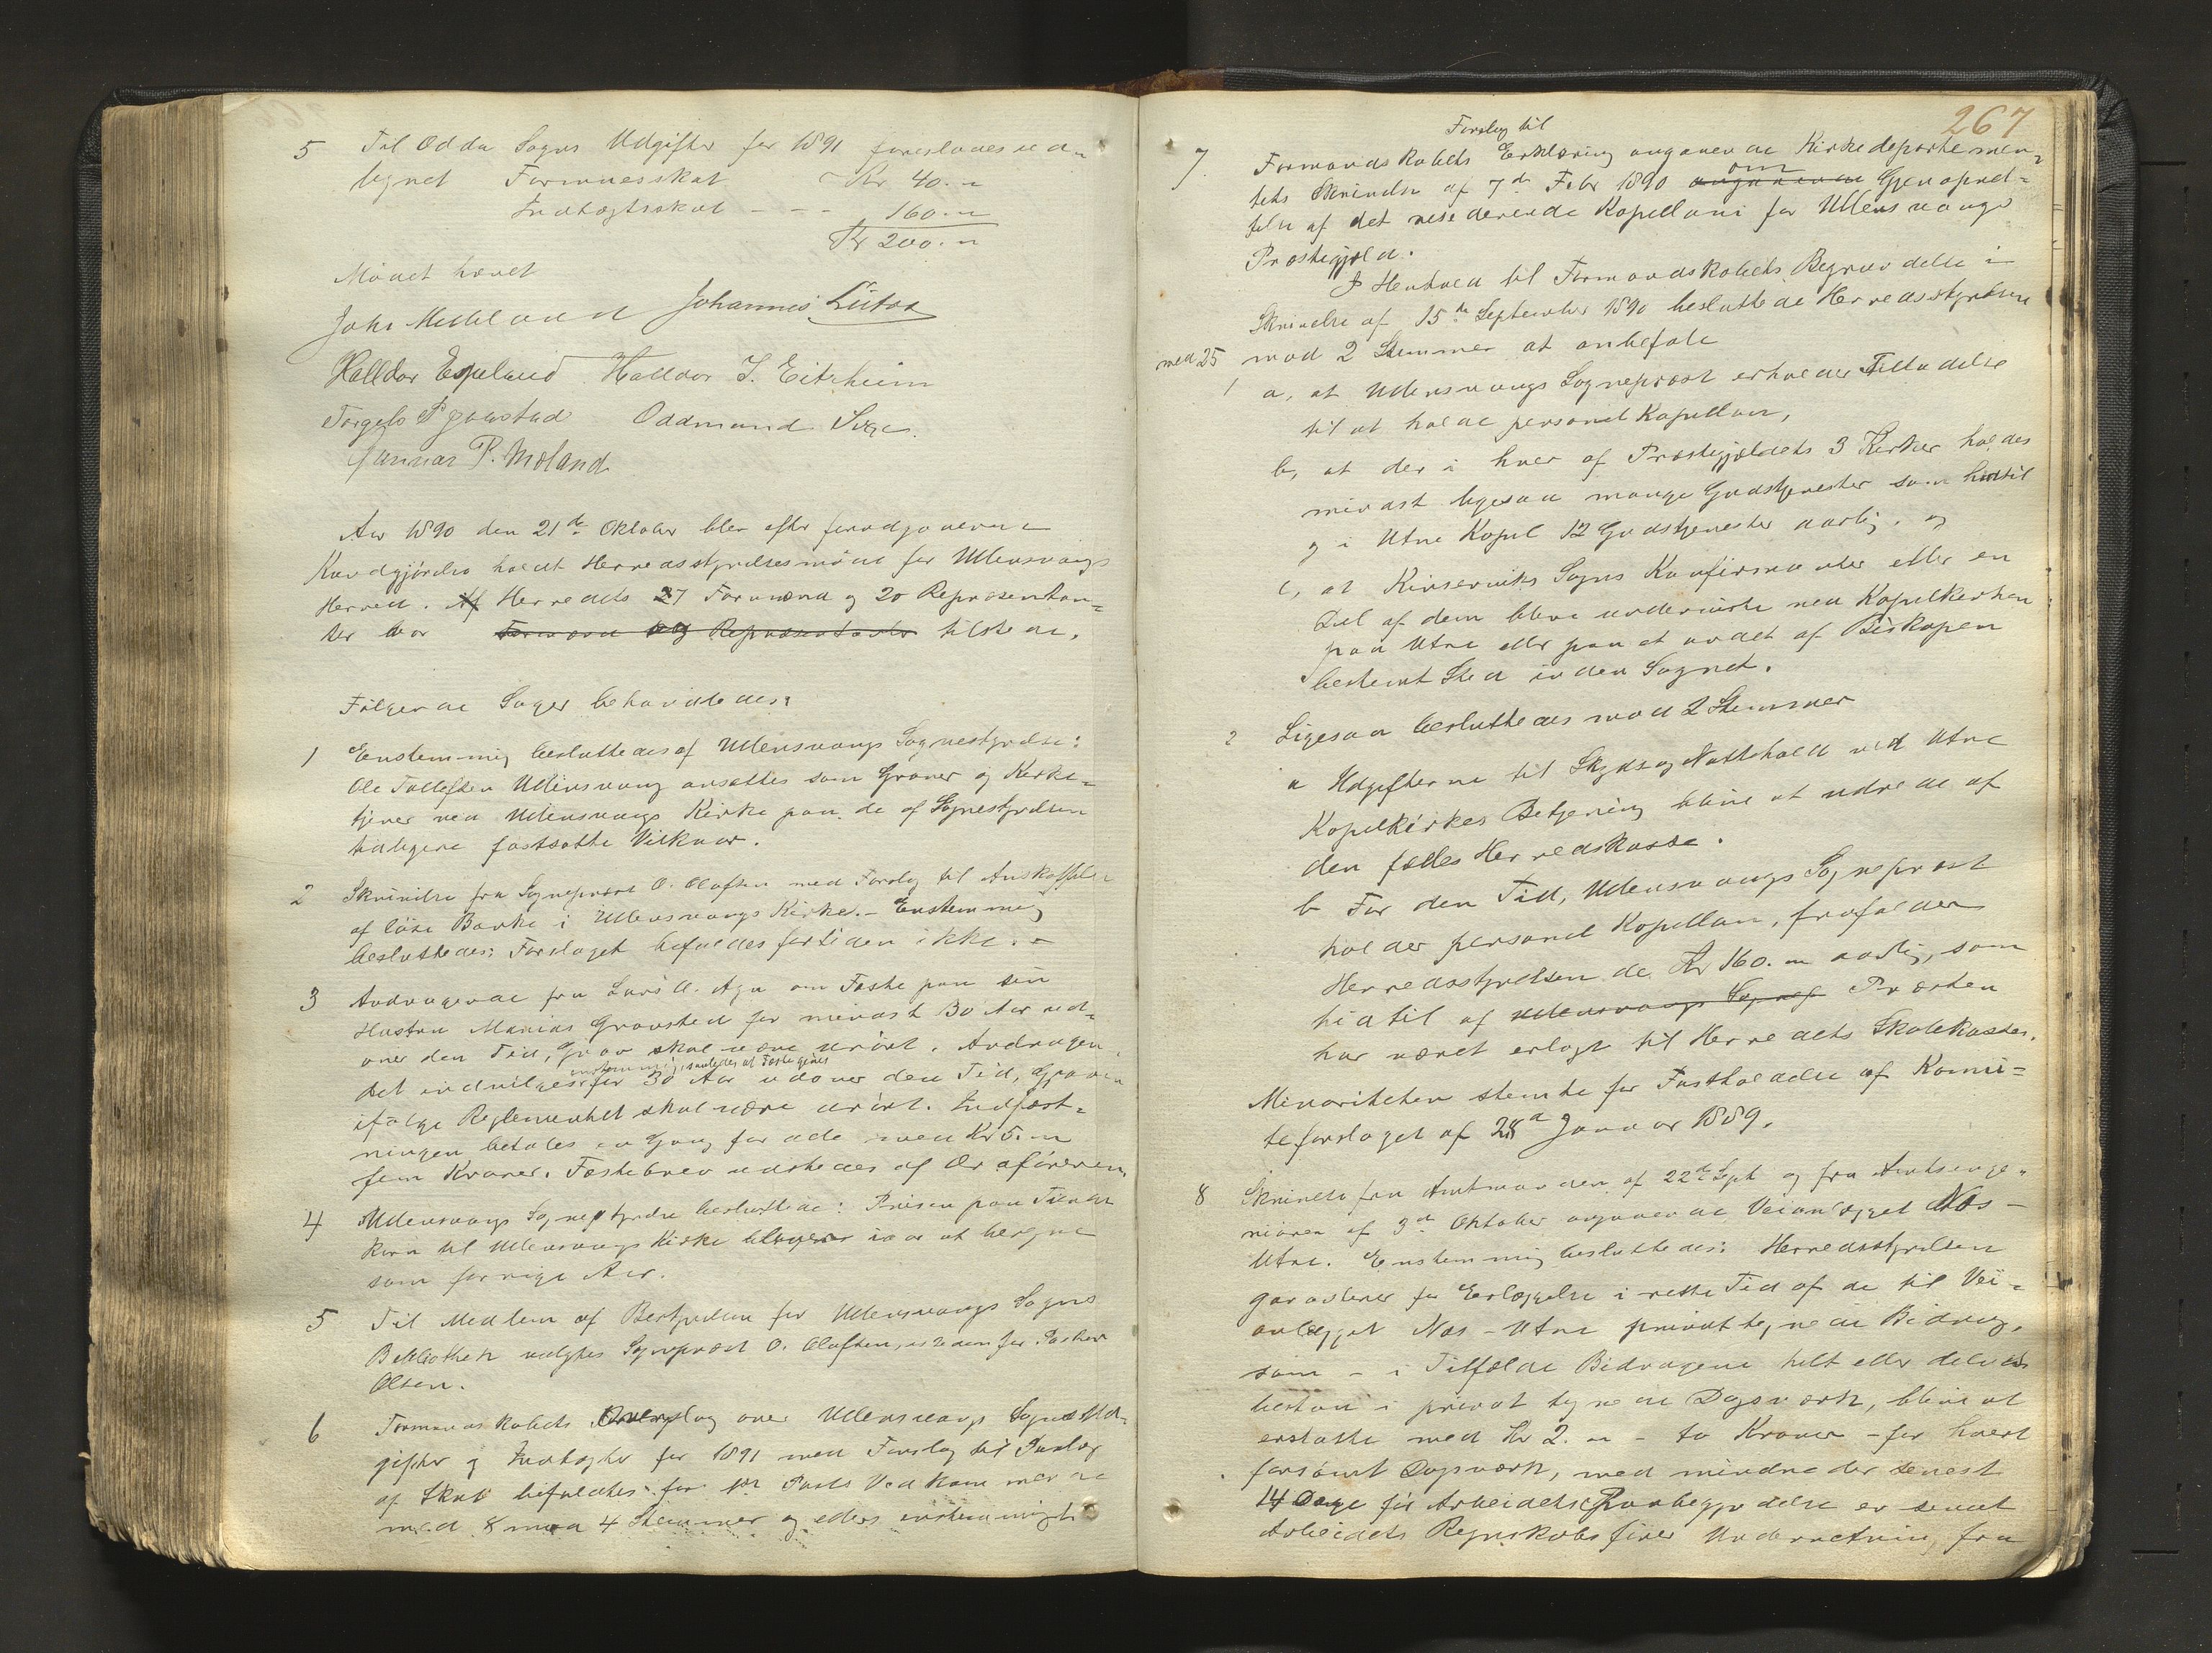 5 Til Odda Sogns Udgifter for 1891 foreslaaes ud-
lignet Formuesskat - Kr 40.„
Indtægtsskat - - - 160.„
Kr 200.„
Mødet hævet
Johs Meland Johannes Lütra
Halldor Espeland Halldor J. Eitrheim
Torgels P Jaastad Oddmund
Gunnar P. Moland
Aar 1890 den 21de Oktober blev efter forudgaaende
Kundgjørelse holdt Herredsstyrelsesmøde for Ullensvangs
Herred. Af Herredets 27 Formænd og 20 Repræsentan-
ter var Formænd og Repræsentanter tilstede.
Følgende Sager behandledes:
1 Enstemmig besluttedes af Ullensvangs Sognestyrelse:
Ole Tollefsen Ullensvang ansættes som Graver og Kirke-
tjener ved Ullensvangs Kirke paa de af Sognestyrelsen
tidligere fastsatte Vilkaar.
2 Skrivelse fra Sogneprest O. Olafsen med Forslag til Anskaffelse
af løse Bænke i Ullensvangs Kirke. - Enstemmig
besluttedes: Forslaget bifaldes for tiden ikke. -
3 Andragende fra Lars A. Aga om Fæste paa sin
Hustru Marias Gravsted for mindst 30 Aar ud-
over den Tid, Grav skal være urørt. Andragen-
enstemmig, saaledes at Fæste gives
det indvilges for 30 Aar udover den Tid, Graven
ifølge Reglementet skal være urørt. Indfæst-
ningen betales en Gang for alle med Kr 5.„
fem Kroner. Fæstebrev udstedes af Ordføreren.
4 Ullensvangs Sognestyrelse besluttede: Prisen paa Tiende
Korn til Ullensvangs Kirke bliver iaar at beregne
som forrige Aar.
5 Til Medlem af Bestyrelsen for Ullensvangs Sogns
Bibliothek valgtes Sogneprest O. Olafsen, istedenfor Pastor
Olsen.
6 Formandskabets Overslag over Ullensvangs Sogns Ud-
gifter og Indtægter for 1891 med Forslag til Paalæg
af Skat bifaldtes: for Posts Vedkommende
med 8 mod 4 Stemmer og ellers enstemmigt.
267
Forslag til
7. Formandskabets Erklæring angaaende Kirkedepartemen-
om
tets Skrivelse af 7de Febr 1890 angaaende Gjenopret-
telse af det residerende Kapellani for Ullensvangs
Præstegjeld.
I Henhold til Formandskabets Begrundelse i
Skrivelse af 15de September 1890 besluttede Herredsstyrelsen
med 25 mod 2 Stemmer at anbefale
1 a, at Ullensvangs Sogneprest erholder Tilladelse
til at holde personel Kapellan,
b, at der i hver af Præstegjeldets 3 Kirker holdes
mindst ligesaa mange Gudstjenester som hidtil
og i Utne Kapel 12 Gudstjenester aarlig, og
c, at Kinserviks Sogns Konfirmanter eller en
Del af dem blive underviste ved Kapelkirken
paa Utne eller paa et andet af Biskopen
bestemt Sted inden Sognet.
2 Ligesaa besluttedes mod 2 Stemmer
a Udgifterne til Skyds og Nattehold ved Utne
Kapelkirkes Betjening blive at udrede af
den fælles Herredskasse.
b For den Tid, Ullensvangs Sogneprest
holder personel Kapellan, frafalder
Herredsstyrelsen de Kr 160.„ aarlig, som
hidtil af Ullensvangs Sognep Præsten
har været erlagt til Herredets Skolekasse.
Minoriteten stemte for Fastholdelse af Komi-
teforslaget af 28de Januar 1889.
8 Skrivelse fra Amtmanden af 22de Sept og fra Amtsinge-
niøren af 3de Oktober angaaende Veianlægget Næs -
Utne. Enstemmig besluttedes: Herredsstyrelsen
garanterer for Erlæggelse i rette Tid af de til Vei-
anlægget Næs - Utne privat tegnede Bidrag,
som - i Tilfælde Bidragene helt eller delvis
bestaar i privat tegnede Dagsværk, blive at
erstatte med Kr 2.„ - to Kroner - for hvert
forsømt Dagsværk, med mindre der senest
14 Dage før Arbeidets Paabegyndelse er sendt
Arbeidets Regnskabsfører Underretning fra